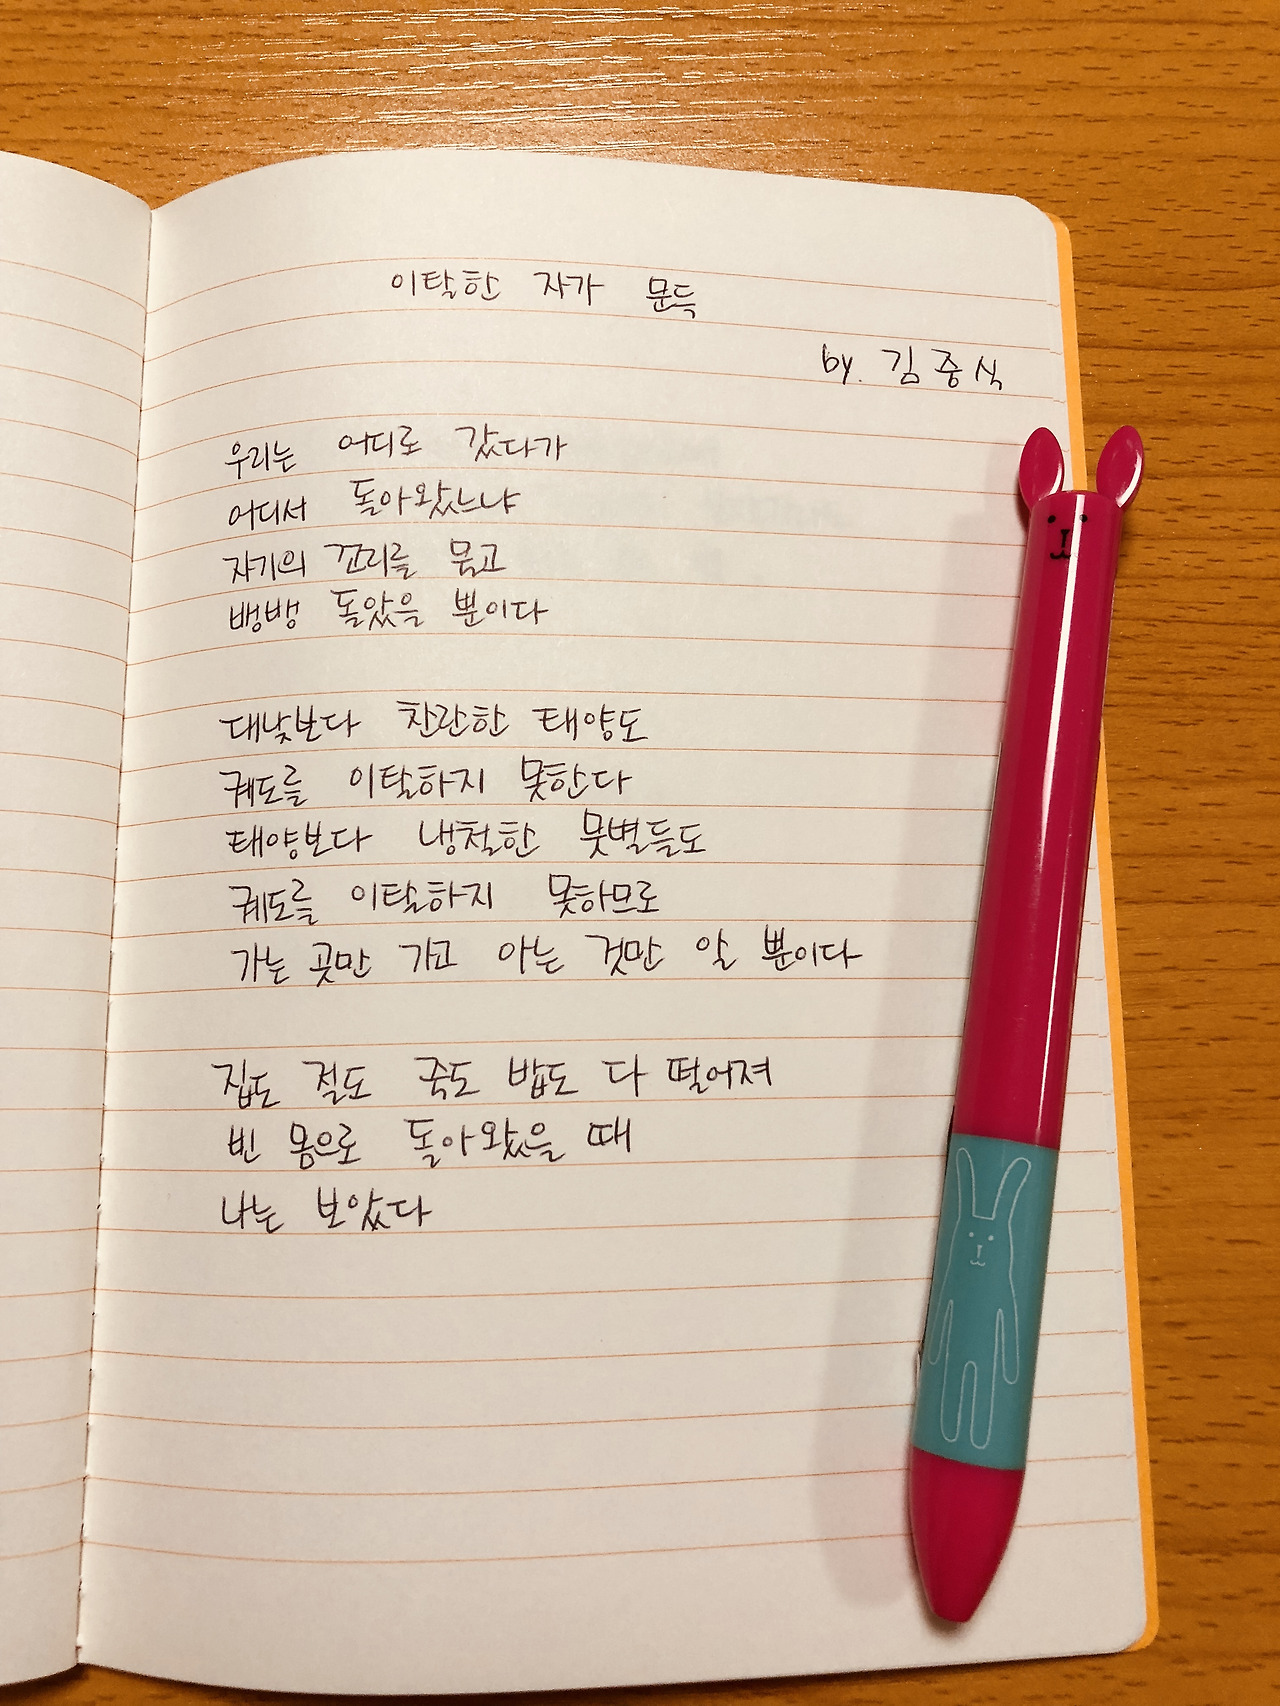 이탈한 자가 문득
by. 김중식
우리는 어디로 갔다가
어디서 돌아왔느냐
자기의 꼬리를 물고
뱅뱅 돌았을 뿐이다
대낮보다 찬란한 태양도
궤도를 이탈하지 못한다
태양보다 냉철한 뭇별들도
궤도를 이탈하지 못하므로
가는 곳만 가고 아는 것만 알 뿐이다
집도 절도 죽도 밥도 다 떨어져
빈 몸으로 돌아왔을 때
나는 보았다